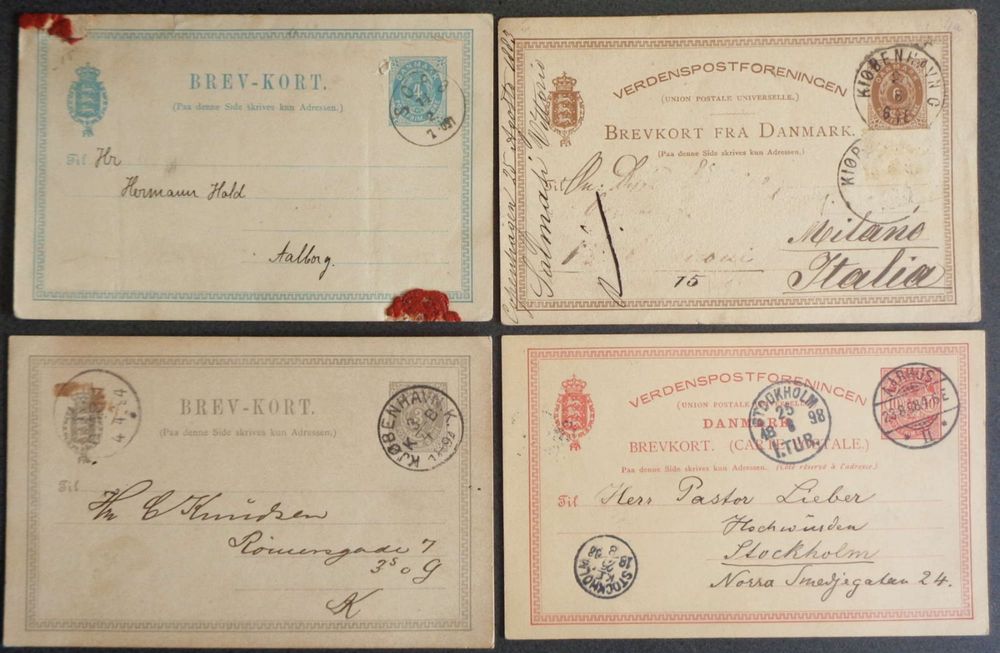 BREV-KORT.
(Paa denne Side skrives kun Adressen.)
DANMARK
4
Til Hr
Hermann Hald
Aalborg.
VERDENSPOSTFORENINGEN
(UNION POSTALE UNIVERSELLE.)
BREVKORT FRA DANMARK.
(Paa denne Side skrives kun Adressen.)
KIØBENHAVN C
KIØB
Til
Milano
Italia
15
Copenhagen 25 Agosto
Salmadi Vittorio
BREV-KORT.
(Paa denne Side skrives kun Adressen.)
KJØBENHAVN K.
Til
Hr C Knudsen
Römersgade 7
3 S o G
K
VERDENSPOSTFORENINGEN
(UNION POSTALE
DANMARK
BREVKORT. (CARTE POSTALE.)
Paa denne Side skrives kun Adressen. (Côté réservé à l'adresse.)
AARHUS
STOCKHOLM
25 8 98
1.TUR.
Til Herr Pastor Lieber
Hochwürden
Stockholm
Norra Smedjegatan 24.
STOCKHOLM